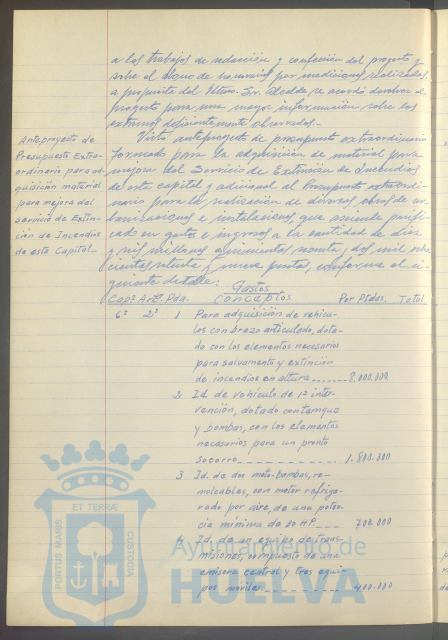 a los trabajos de redacción y confección del proyecto y
sobre el abono de honorarios por mediciones realizadas,
a propuesta del Iltmo. Sr. Alcalde se acordó devolver el
proyecto para una mayor información sobre los
extremos deficientemente observados.-
Anteproyecto de
Presupuesto Extra-
ordinario para ad-
quisición material
para mejora del
servicio de Extin-
ción de Incendios
de esta Capital.-
Visto anteproyecto de presupuesto extraordinario
formado para la adquisición de material para
mejora del Servicio de Extinción de Incendios
de esta capital y adicional al Presupuesto extraordi-
nario para la realización de diversas obras de ur-
banizaciones e instalaciones que asciende
cado en gastos e ingresos a la cantidad de diez
y seis millones quinientas noventa y dos mil
cientas setenta y nueve pesetas, conforme al si-
guiente detalle:
Gastos
Capº Artº Pda. Conceptos Por Ptdas. Total
6º 2º 1 Para adquisición de vehícu-
los con brazo articulado, dota-
do con los elementos necesarios
para salvamento y extinción
de incendios en altura 8.000.000
2 Id. de vehículo de 1ª inter-
vención, dotado con tanque
y bombas, con los elementos
necesarios para un pronto
socorro 1.800.000
3 Id. de dos moto-bombas, re-
molcables, con motor refrige-
rado por aire, de una poten-
cia mínima de 20 HP. 700.000
4 Id. de un equipo de trans-
misiones, compuesto de una
emisora central y tres equi-
pos móviles 400.000
PORTUS MARIS
ET TERRÆ
CUSTODIA
Ayuntamiento de
HUELVA